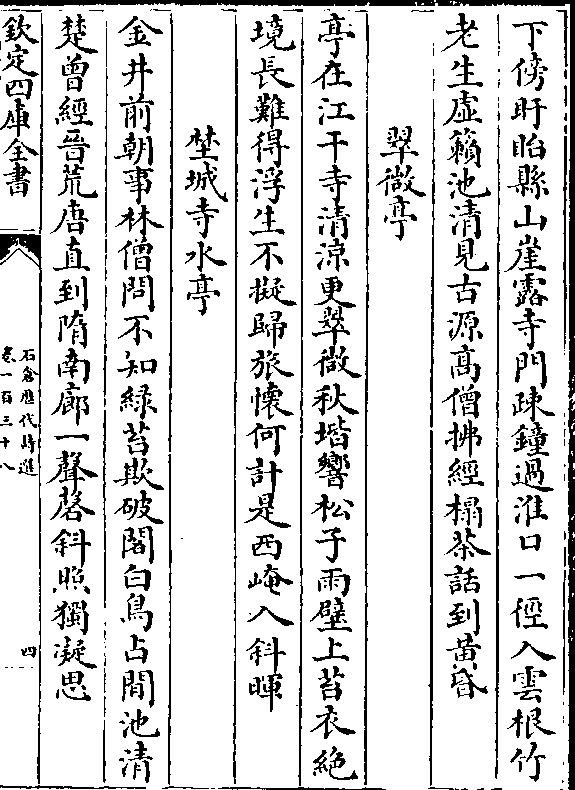 下傍盱眙縣山崖露寺門疎鐘過淮口一徑入雲根竹
老生虛籟池清見古源高僧拂經榻茶話到黃昏
翠微亭
亭在江干寺清涼更翠微秋堦響松子雨壁上苔衣絶
境長難得浮生不擬歸旅懷何計是西崦入斜暉
埜城寺水亭
金井前朝事林僧問不知緑苔欺破閣白鳥占閒池清
楚曾經晉荒唐直到隋南廊一聲磬斜照獨凝思
欽定四庫全書
石倉歷代詩選
卷一百三十八
四